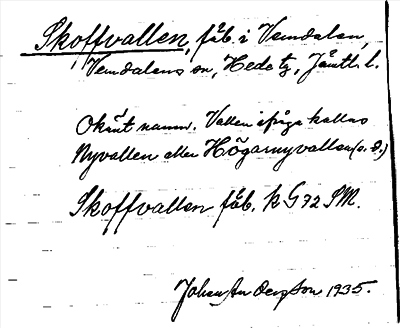 Skoffvallen, fåb. i Vemdalen,
Vemdalens sn, Hede tg, Jämtl. l.
Okänt namn. Vallen ifråga kallas
Nyvallen eller Högarnyvallen (o. d.)
Skoffvallen fåb. k G 72 SM.
Johan Anderson 1935.